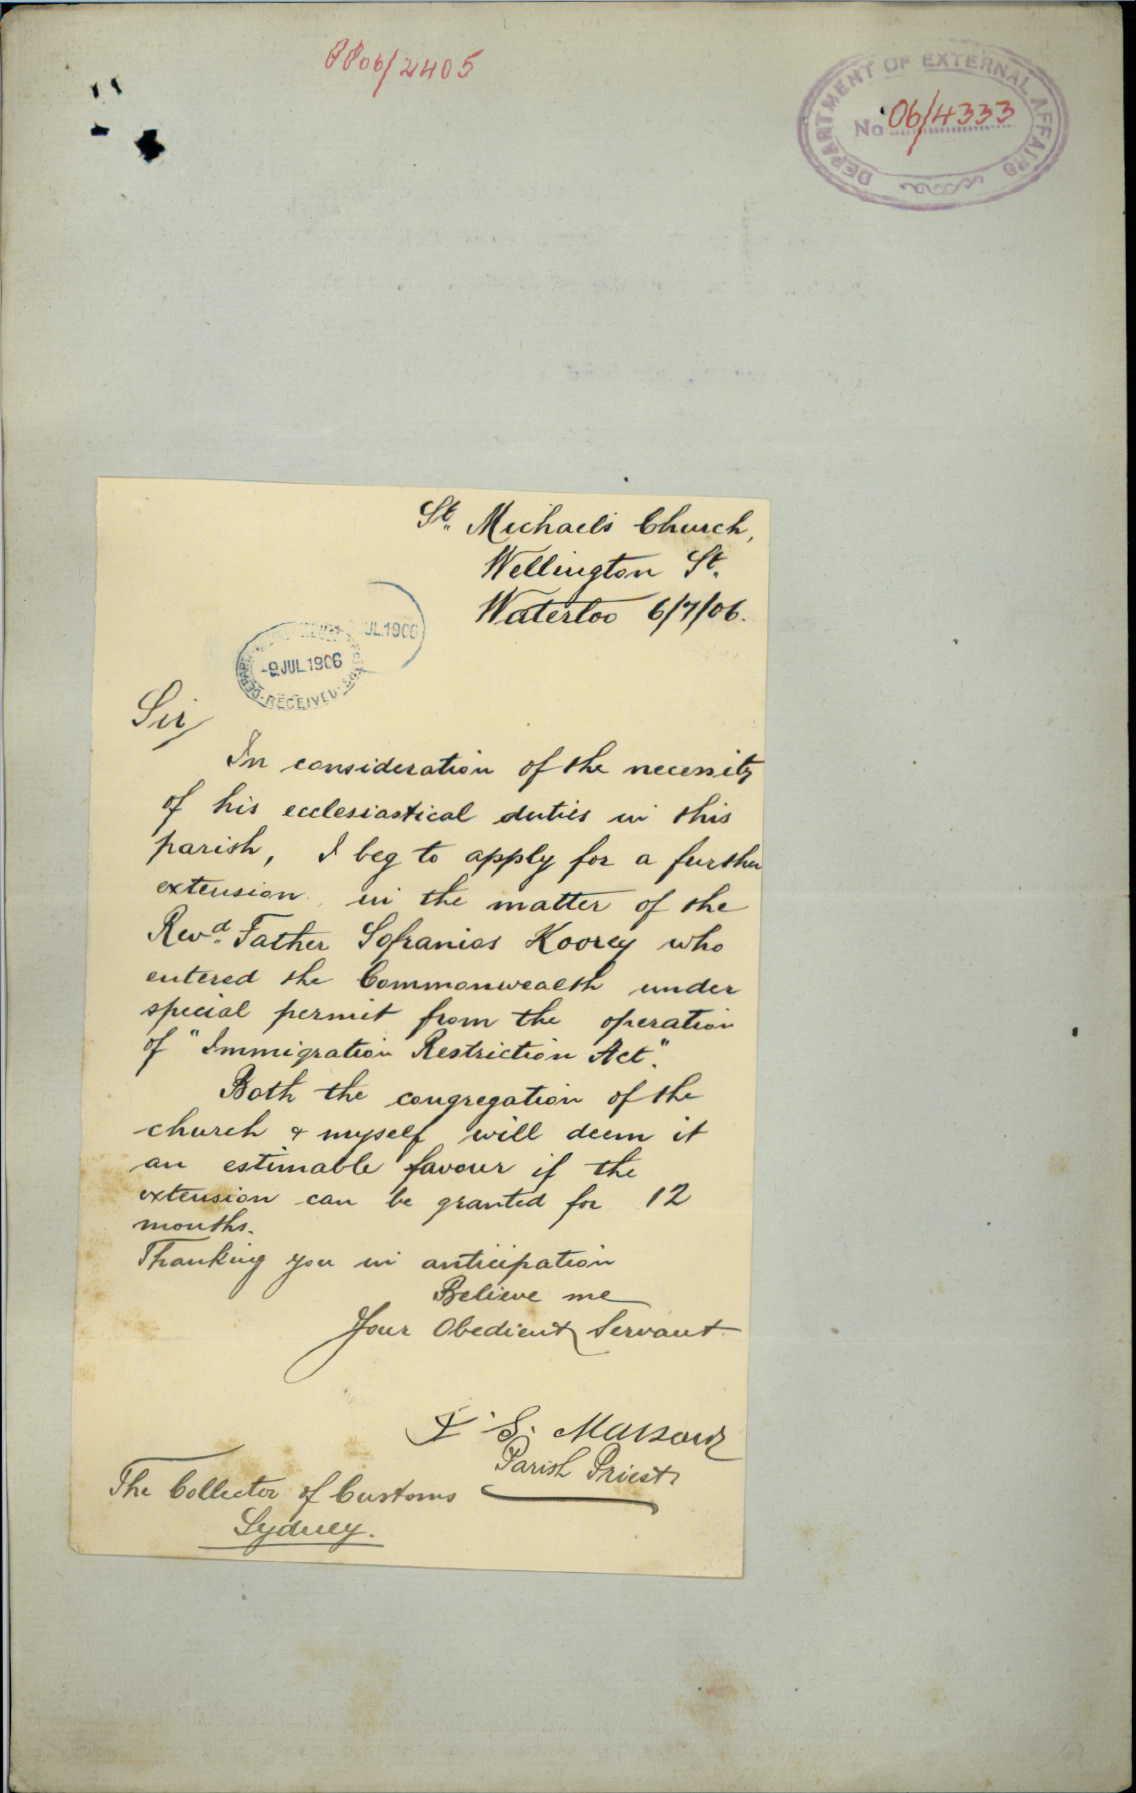 PP06/2405
DEPARTMENT OF EXTERNAL AFFAIRS
No 06/4333
St. Michael's Church,
Wellington St.
Waterloo 6/7/06.
JUL 1906
-9 JUL 1906
RECEIVED
Sir
In consideration of the necessity
of his ecclesiastical duties in this
parish, I beg to apply for a further
extension in the matter of the
Revd. Father Sofranios Koorey who
entered the Commonwealth under
special permit from the operation
of "Immigration Restriction Act".
Both the congregation of the
church & myself will deem it
an estimable favour if the
extension can be granted for 12
months.
Thanking you in anticipation
Believe me
Your Obedient Servant
S. Mansour
Parish Priest
The Collector of Customs
Sydney.